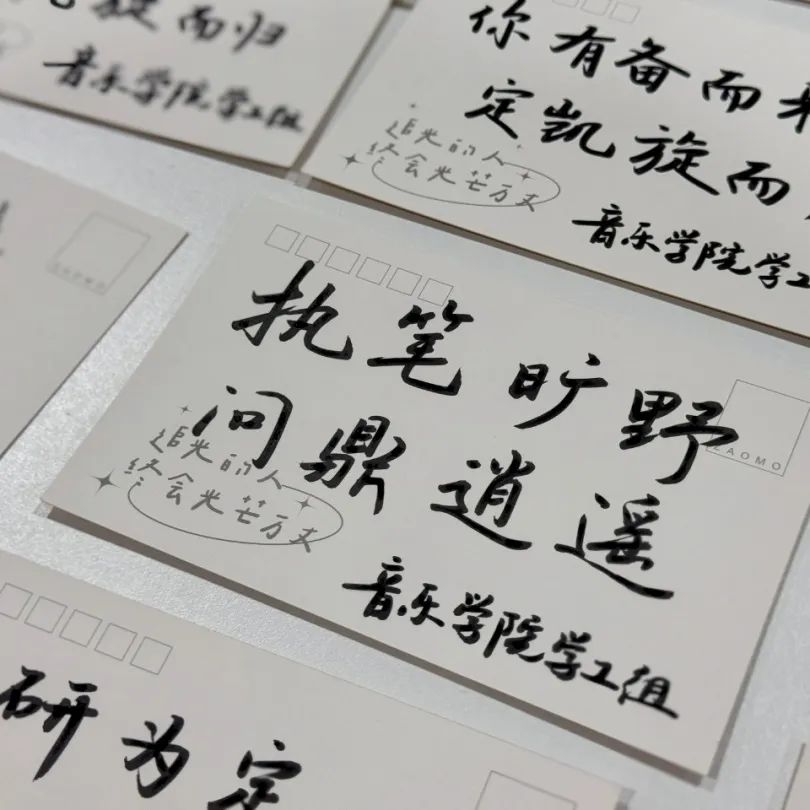 旋而归
音乐学院学工组
你有备而来
定凯旋而
追光的人
终会光芒万丈
音乐学院学工
执笔旷野
问鼎逍遥
追光的人
终会光芒万丈
ZAOMO
音乐学院学工组
研为定